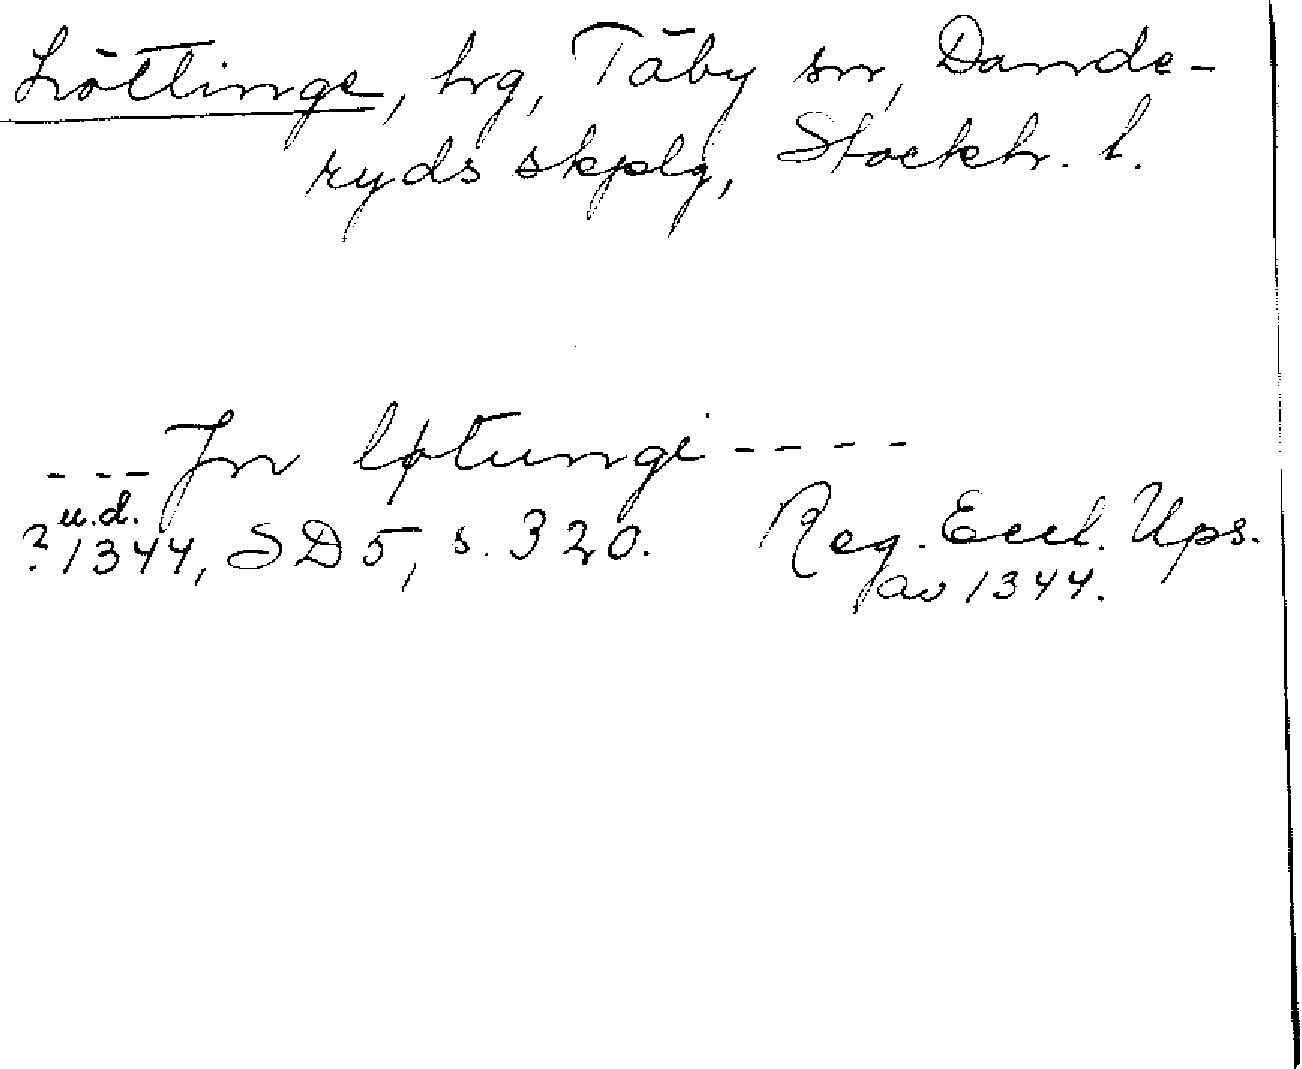 Löttinge, hrg, Täby sn, Dande-
ryds skplg, Stockh. l.
--- Jn løtungi ----
u.d.
? 1344, SD 5, s. 320. Reg. Eccl. Ups.
av 1344.